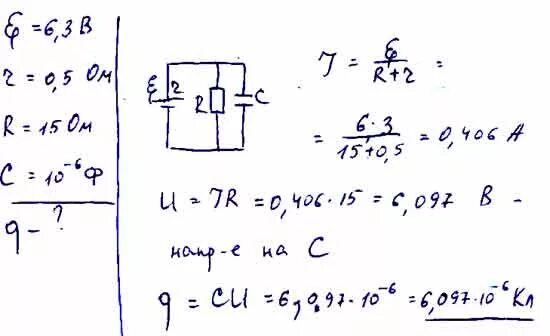 ℰ = 6,3 В
r = 0,5 Ом
R = 15 Ом
C = 10⁻⁶ Ф
q - ?
ℰ r R C
J = ℰ / (R + r) =
= 6·3 / (15+0,5) = 0,406 А
U = JR = 0,406·15 = 6,097 В -
напр-е на С
q = CU = 6,0,97·10⁻⁶ = 6,097·10⁻⁶ Кл